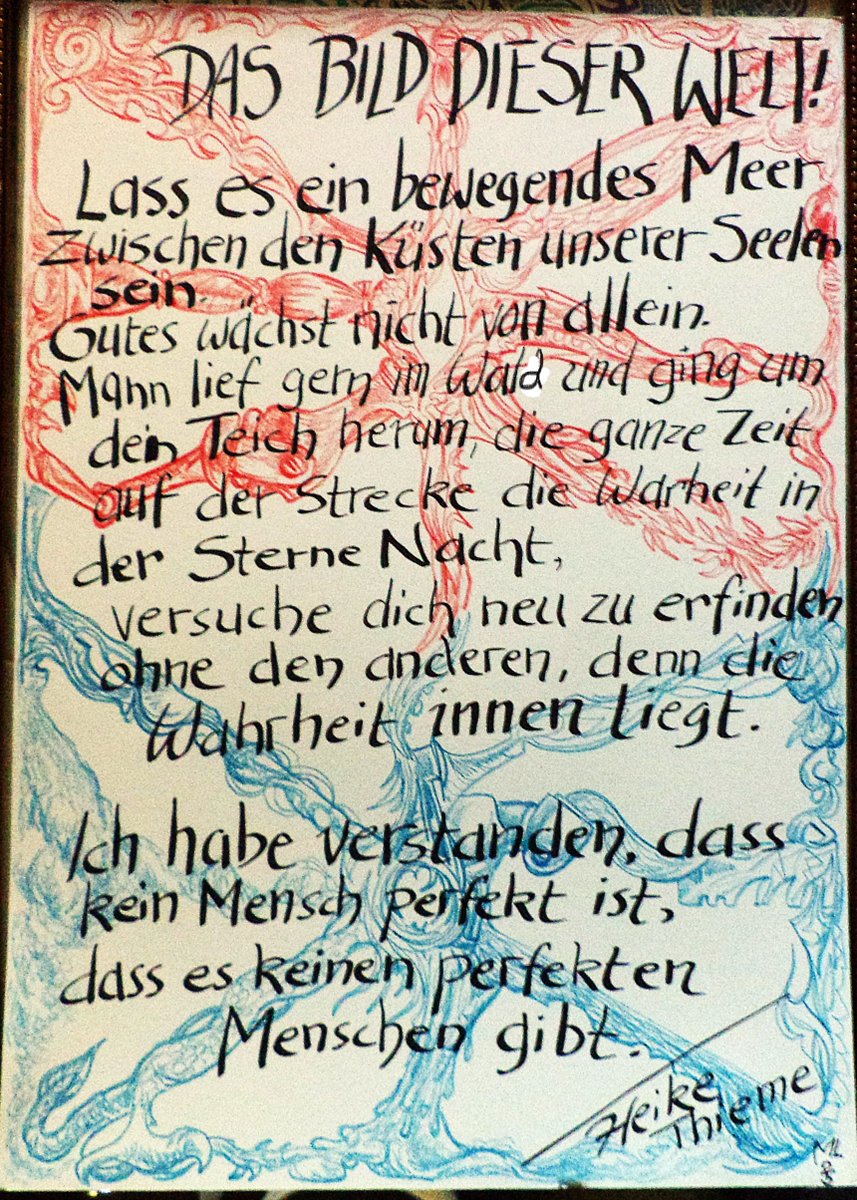 DAS BILD DIESER WELT!
Lass es ein bewegendes Meer
zwischen den Küsten unserer Seelen
sein.
Gutes wächst nicht von allein.
Mann lief gern im Wald und ging um
dein Teich herum, die ganze Zeit
auf der Strecke die Warheit in
der Sterne Nacht,
versuche dich neu zu erfinden
ohne den anderen, denn die
Wahrheit innen liegt.
Ich habe verstanden, dass
kein Mensch perfekt ist,
dass es keinen perfekten
Menschen gibt.
Heike
Thieme